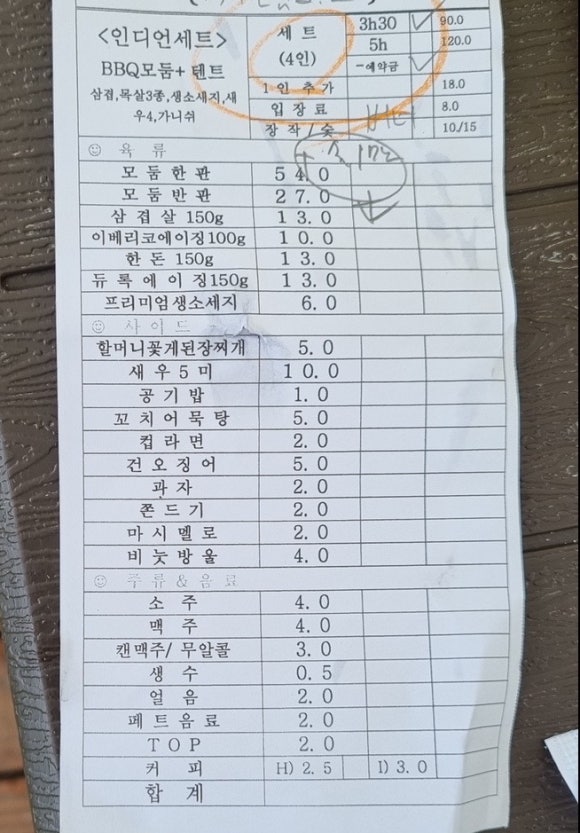 <인디언세트>
BBQ모둠+ 텐트
삼겹,목살3종,생소세지,새
우4,가니쉬
세 트
(4인)
3h30 90.0
5h 120.0
-예약금
1 인 추 가 18.0
입 장 료 8.0
장 작 / 숯 10./15
☺ 육 류
모 둠 한 판 5 4. 0
모 둠 반 판 2 7. 0
삼 겹 살 150g 1 3. 0
이베리코에이징100g 1 0. 0
한 돈 150g 1 3. 0
듀 록 에 이 징150g 1 3. 0
프리미엄생소세지 6. 0
☺ 사 이 드
할머니꽃게된장찌개 5. 0
새 우 5 미 1 0. 0
공 기 밥 1. 0
꼬 치 어 묵 탕 5. 0
컵 라 면 2. 0
건 오 징 어 5. 0
과 자 2. 0
쫀 드 기 2. 0
마 시 멜 로 2. 0
비 눗 방 울 4. 0
☺ 주 류 & 음 료
소 주 4. 0
맥 주 4. 0
캔맥주/ 무알콜 3. 0
생 수 0. 5
얼 음 2. 0
페 트 음 료 2. 0
T O P 2. 0
커 피 H) 2. 5 I) 3. 0
합 계